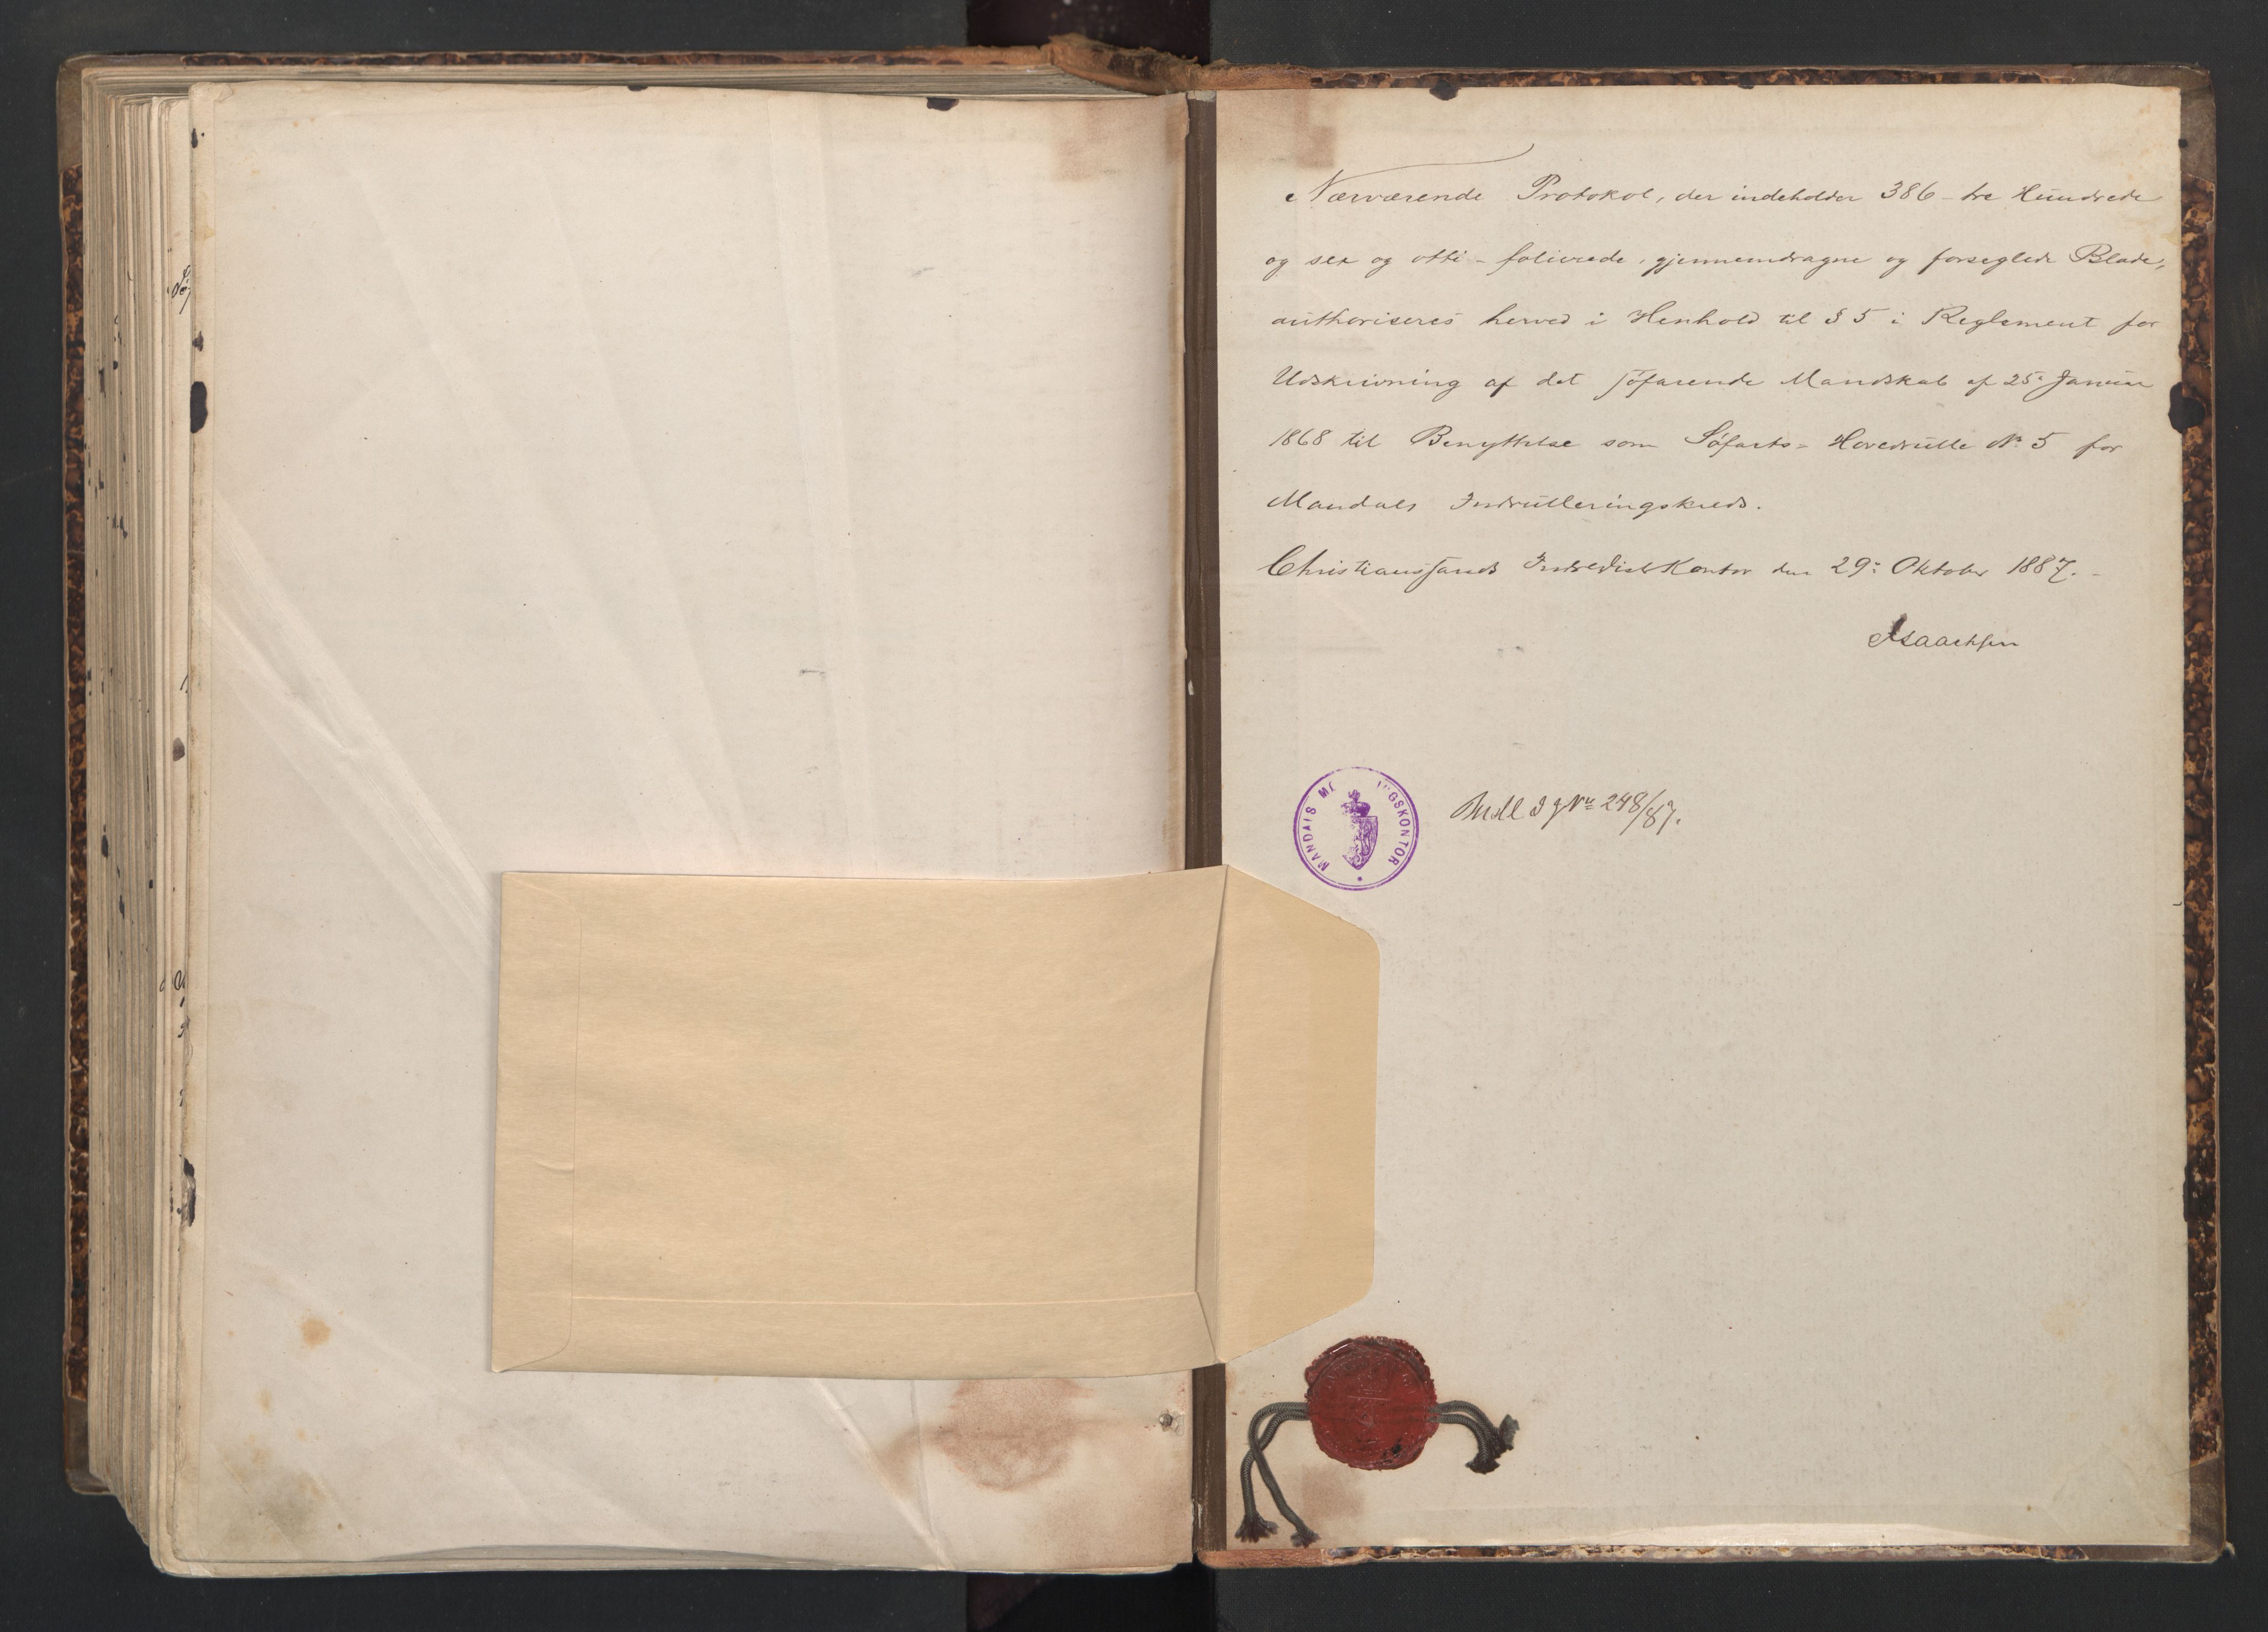 Nærværende Protokol, der indeholder 386 - tre Hundrede
og sex og otti - folierede, gjennemdragne og forseglede Blade,
authoriseres herved i Henhold til § 5 i Reglement for
Udskrivning af det søfarende Mandskab af 25 Januar
1868 til Benyttelse som Søfarts-Hovedrulle No 5 for
Mandals Indrulleringskreds.
Christianssands Kontor den 29 Oktober 1887.
Isaachsen
MANDALS GSKONTOR
248/87.